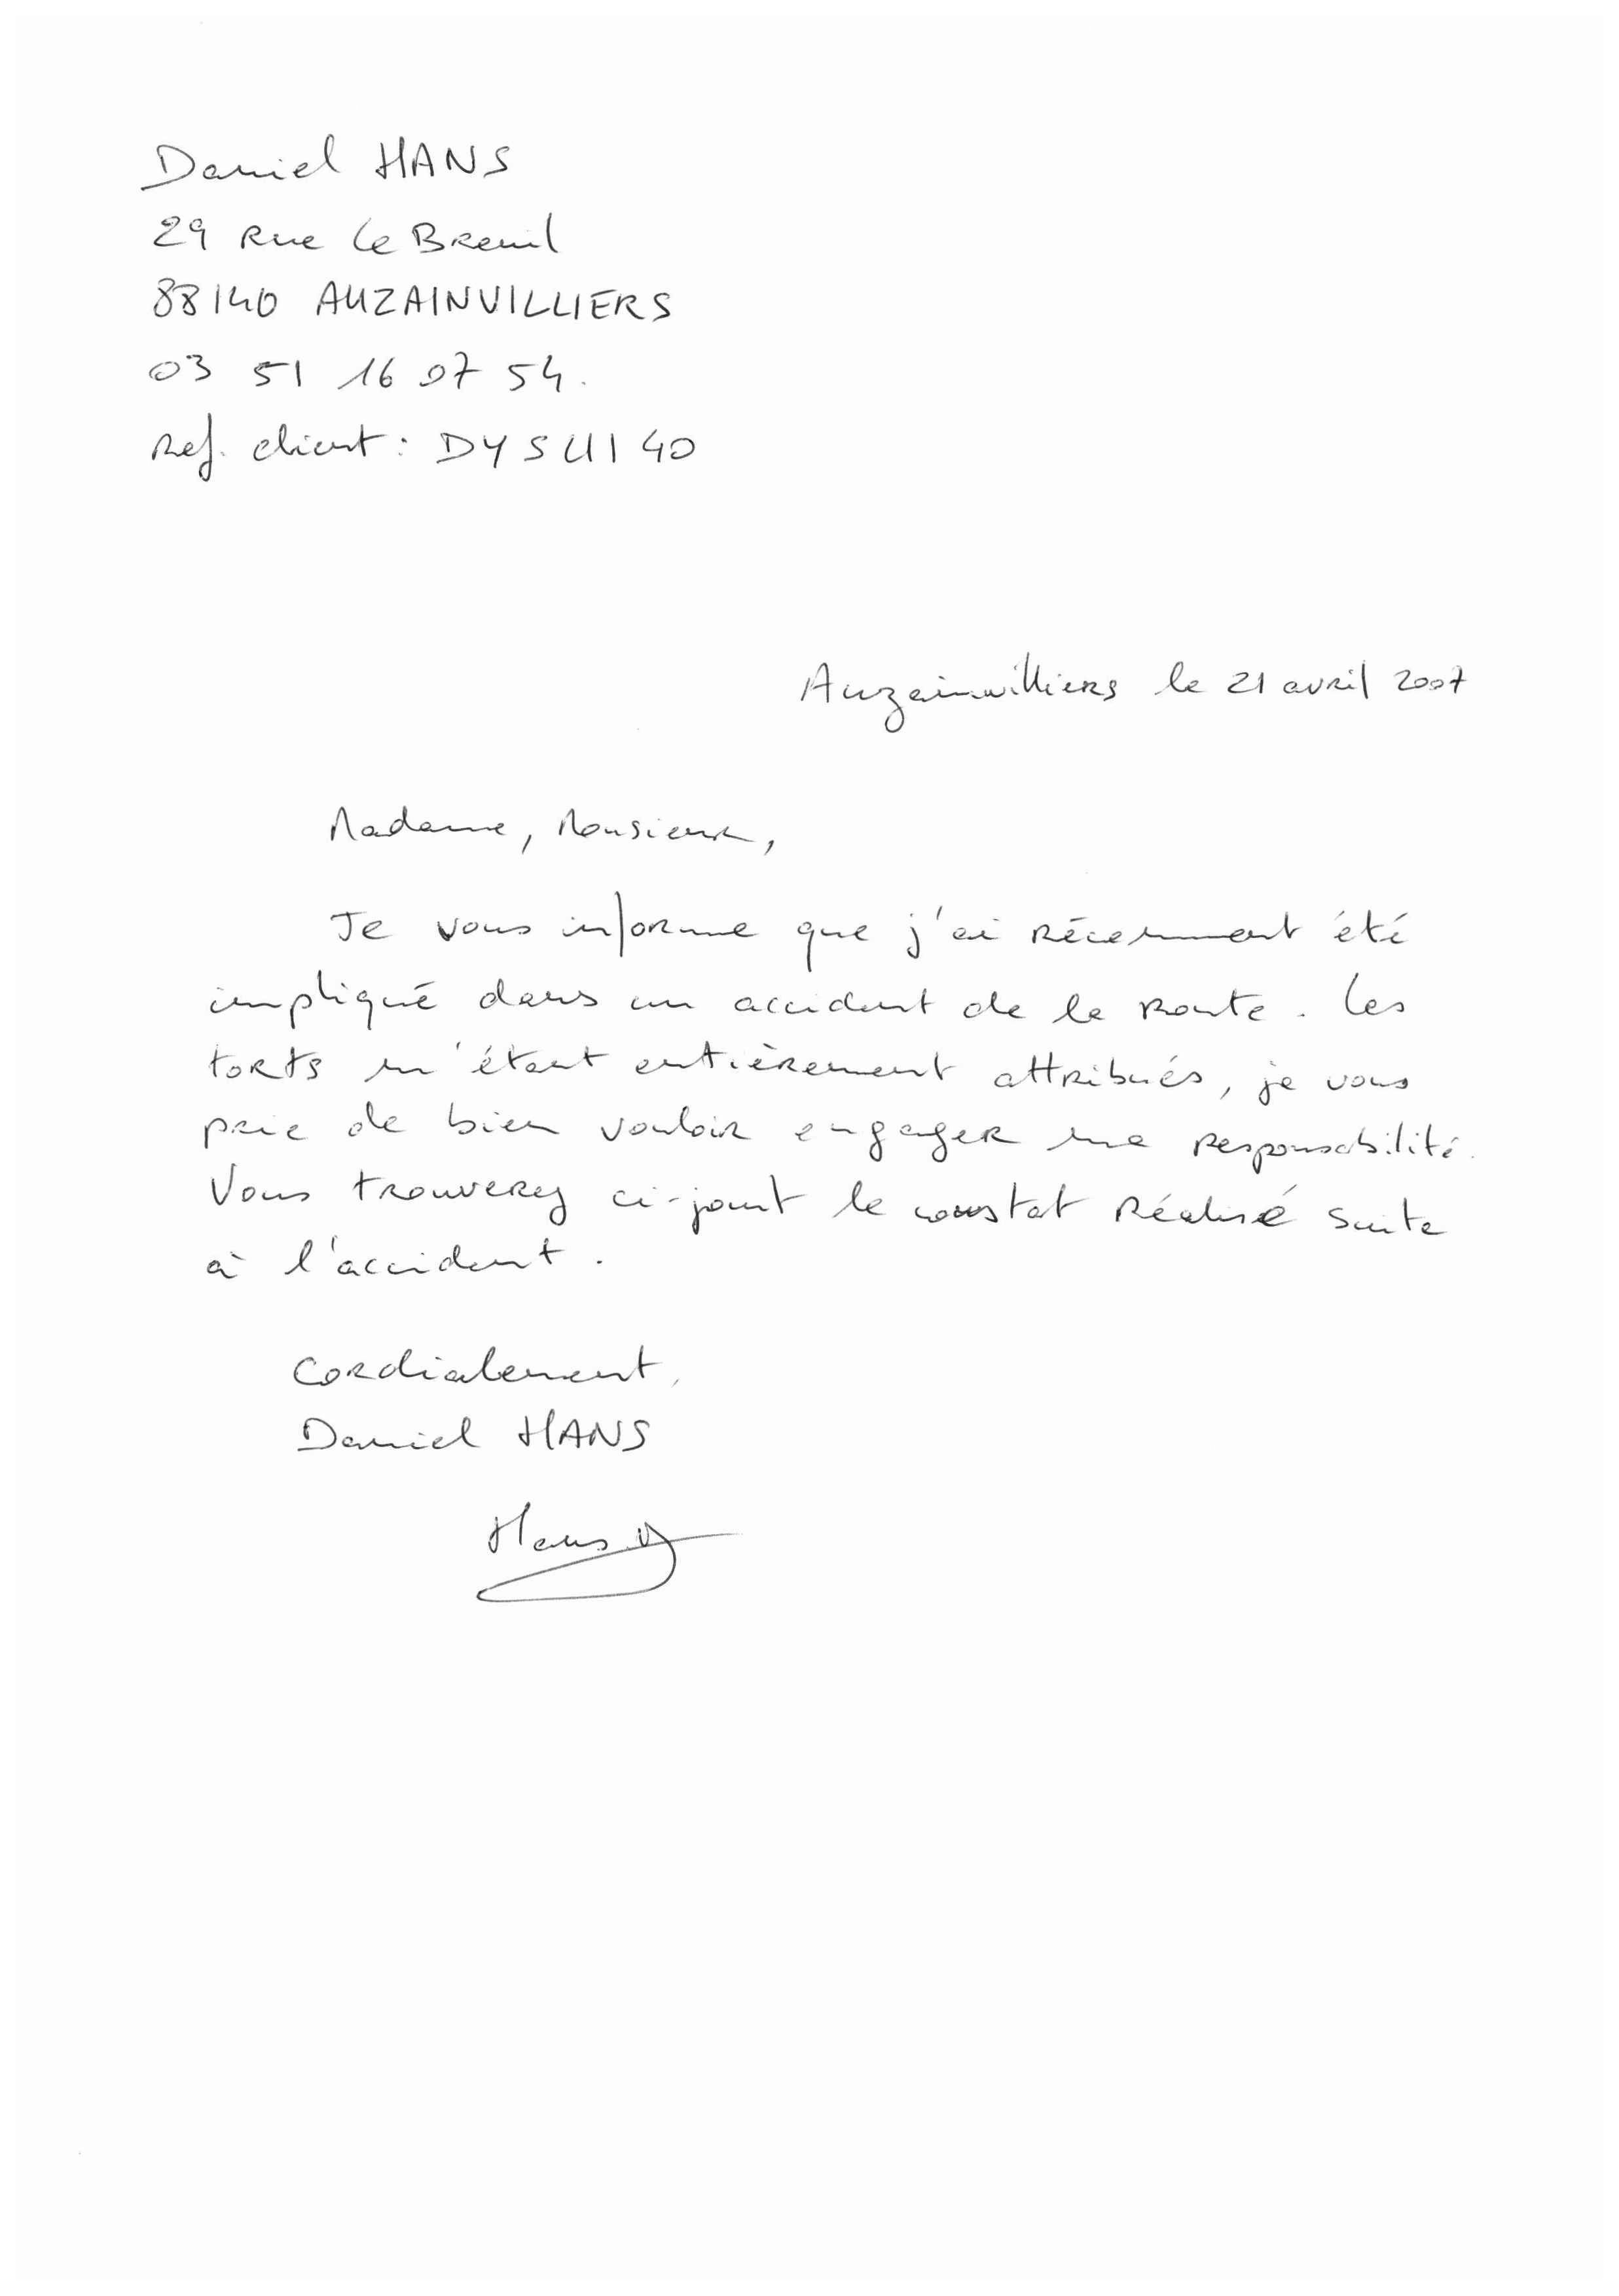 Daniel HANS
29 Rue Le Breuil
88140 AUZAINVILLIERS
03 51 16 07 54.
Ref. client : DYSUI40
Auzainvilliers le 21 avril 2007
Madame, Monsieur,
Je vous informe que j'ai récemment été
impliqué dans un accident de la route. Les
torts m'étant entièrement attribués, je vous
prie de bien vouloir engager ma responsabilité.
Vous trouverez ci-joint le constat réalisé suite
à l'accident.
Cordialement,
Daniel HANS
Hans D